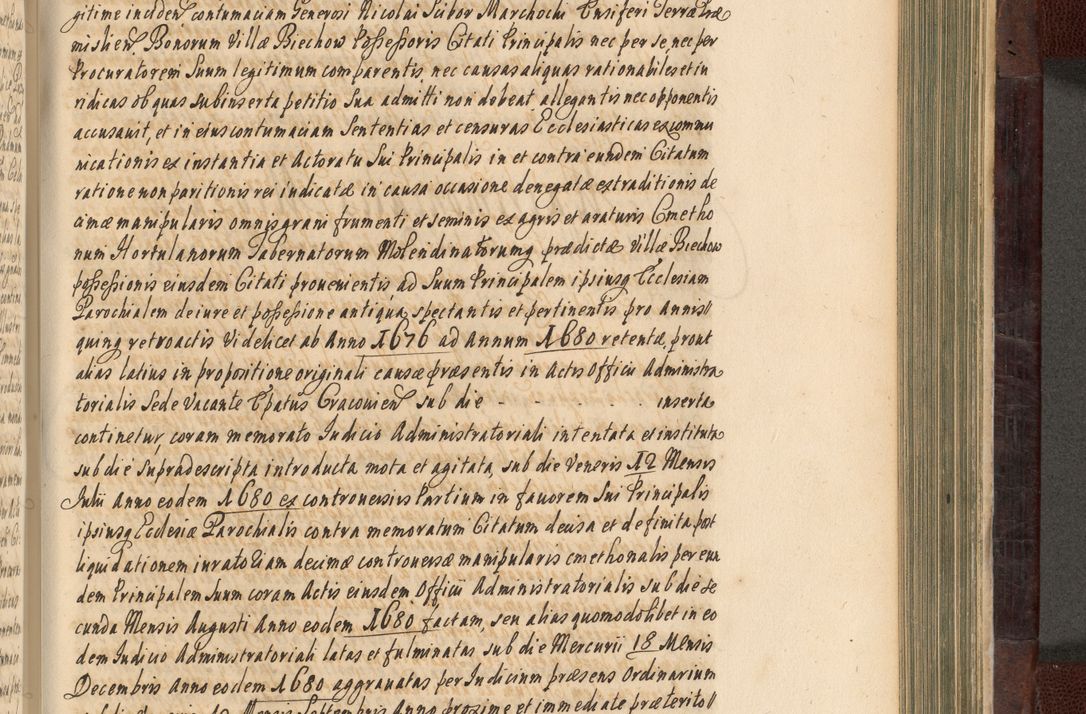 gitime incidend contumaciam Generosi Nicolai Scibor Marchochi Ensiferi Terræ Præ
misliens Bonorum Villæ Biechow Possessoris Citati Principalis nec per se, nec per
Procuratorem Suum legitimum comparentis, nec causas aliquas rationabiles et iu
ridicas ob quas subinserta petitio Sua admitti non debeat allegantis nec opponentis
accusavit, et in eius contumaciam Sententias et censuras Ecclesiasticas excommu
nicationis ex instantia et Actoratu Sui Principalis in et contra eundem Citatum
ratione non paritionis rei iudicatæ in causa occasione denegatæ extraditionis de
cimæ manipularis omnis grani frumenti et seminis ex agris et araturis Cmetho
num Hortulanorum Tabernatorum Molendinatorumq prædictæ Villæ Biechow
possessionis eiusdem Citati provenientis, ad Suum Principalem ipsiusq Ecclesiam
Parochialem de iure et possessione antiqua spectantis et pertinentis pro Annis
quinq retroactis Videlicet ab Anno 1676 ad Annum 1680 retentæ, prout
alias latius in propositione originali causæ præsentis in Actis Officii Administra
torialis Sede Vacante Epatus Cracovien sub die - - - - - - inserta
continetur, coram memorato Iudicio Administratoriali intentata et instituta
sub die supradescripta introducta mota et agitata, sub die Veneris 12 Mensis
Julii Anno eodem 1680 ex controversiis Partium in favorem Sui Principalis
ipsiusq Ecclesiæ Parochialis contra memoratum Citatum decisa et definita post
liquidationem iuratoriam decimæ controversæ manipularis cmethonalis per eun
dem Principalem Suum coram Actis eiusdem Officii Administratorialis sub die se
cunda Mensis Augusti Anno eodem 1680 factam, seu alias quomodolibet in eo
dem Iudicio Administratoriali latas et fulminatas sub die Mercurii 18 Mensis
Decembris Anno eodem 1680 aggravatas per Iudicium præsens Ordinarium
Mensis Septembris Anno proxime et immediate præterito